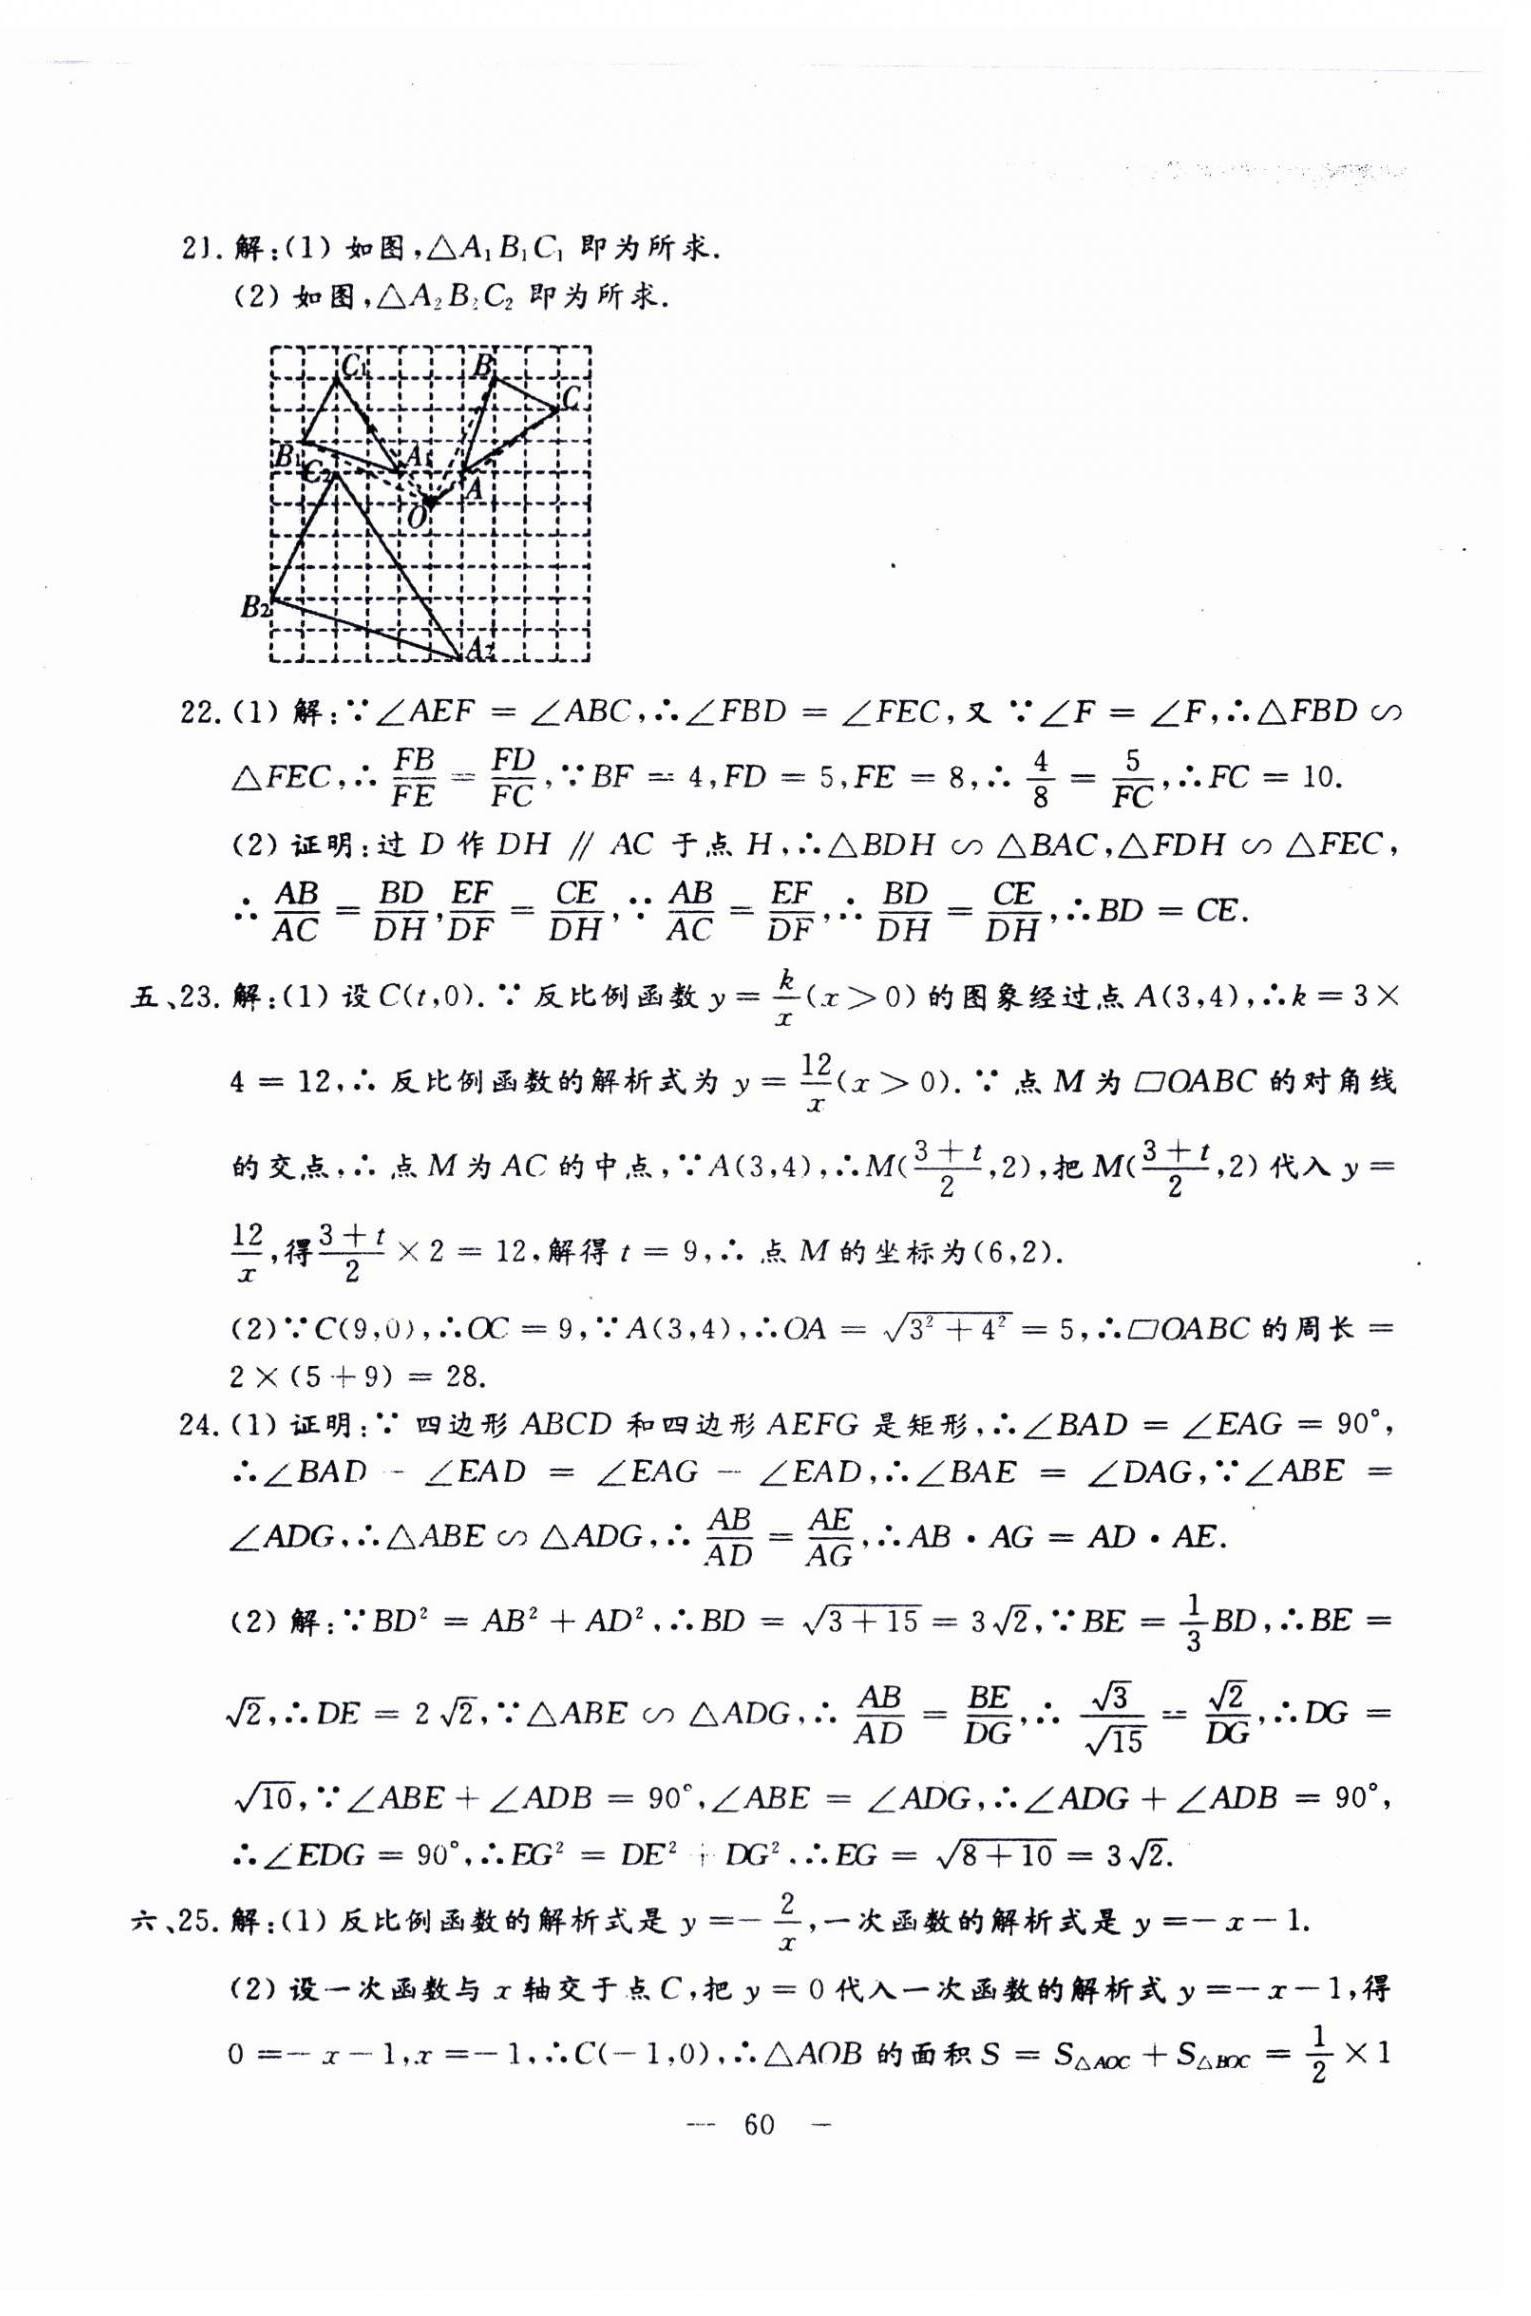 21. 解:(1) 如图,△A₁B₁C₁ 即为所求.
(2) 如图,△A₂B₂C₂ 即为所求.
C₁ B
C
B₁ A₁
C₂ A
O
B₂
A₂
22. (1) 解:∵∠AEF = ∠ABC,∴∠FBD = ∠FEC,又 ∵∠F = ∠F,∴△FBD ∽
△FEC,∴ FB/FE = FD/FC,∵BF = 4,FD = 5,FE = 8,∴ 4/8 = 5/FC,∴FC = 10.
(2) 证明:过 D 作 DH ∥ AC 于点 H,∴△BDH ∽ △BAC,△FDH ∽ △FEC,
∴ AB/AC = BD/DH, EF/DF = CE/DH,∵ AB/AC = EF/DF,∴ BD/DH = CE/DH,∴BD = CE.
五、23. 解:(1) 设 C(t,0).∵ 反比例函数 y = k/x (x > 0) 的图象经过点 A(3,4),∴k = 3 ×
4 = 12,∴ 反比例函数的解析式为 y = 12/x (x > 0).∵ 点 M 为 ▱OABC 的对角线
的交点,∴ 点 M 为 AC 的中点,∵A(3,4),∴M((3+t)/2,2),把 M((3+t)/2,2) 代入 y =
12/x,得 (3+t)/2 × 2 = 12,解得 t = 9,∴ 点 M 的坐标为(6,2).
(2)∵C(9,0),∴OC = 9,∵A(3,4),∴OA = √(3² + 4²) = 5,∴▱OABC 的周长 =
2 × (5 + 9) = 28.
24. (1) 证明:∵ 四边形 ABCD 和四边形 AEFG 是矩形,∴∠BAD = ∠EAG = 90°,
∴∠BAD - ∠EAD = ∠EAG - ∠EAD,∴∠BAE = ∠DAG,∵∠ABE =
∠ADG,∴△ABE ∽ △ADG,∴ AB/AD = AE/AG,∴AB · AG = AD · AE.
(2) 解:∵BD² = AB² + AD²,∴BD = √(3 + 15) = 3√2,∵BE = 1/3 BD,∴BE =
√2,∴DE = 2√2,∵△ABE ∽ △ADG,∴ AB/AD = BE/DG,∴ √3/√15 = √2/DG,∴DG =
√10,∵∠ABE + ∠ADB = 90°,∠ABE = ∠ADG,∴∠ADG + ∠ADB = 90°,
∴∠EDG = 90°,∴EG² = DE² + DG²,∴EG = √(8 + 10) = 3√2.
六、25. 解:(1) 反比例函数的解析式是 y =- 2/x,一次函数的解析式是 y =- x - 1.
(2) 设一次函数与 x 轴交于点 C,把 y = 0 代入一次函数的解析式 y =- x - 1,得
0 =- x - 1,x =- 1,∴C(- 1,0),∴△AOB 的面积 S = S△AOC + S△BOC = 1/2 × 1
— 60 —